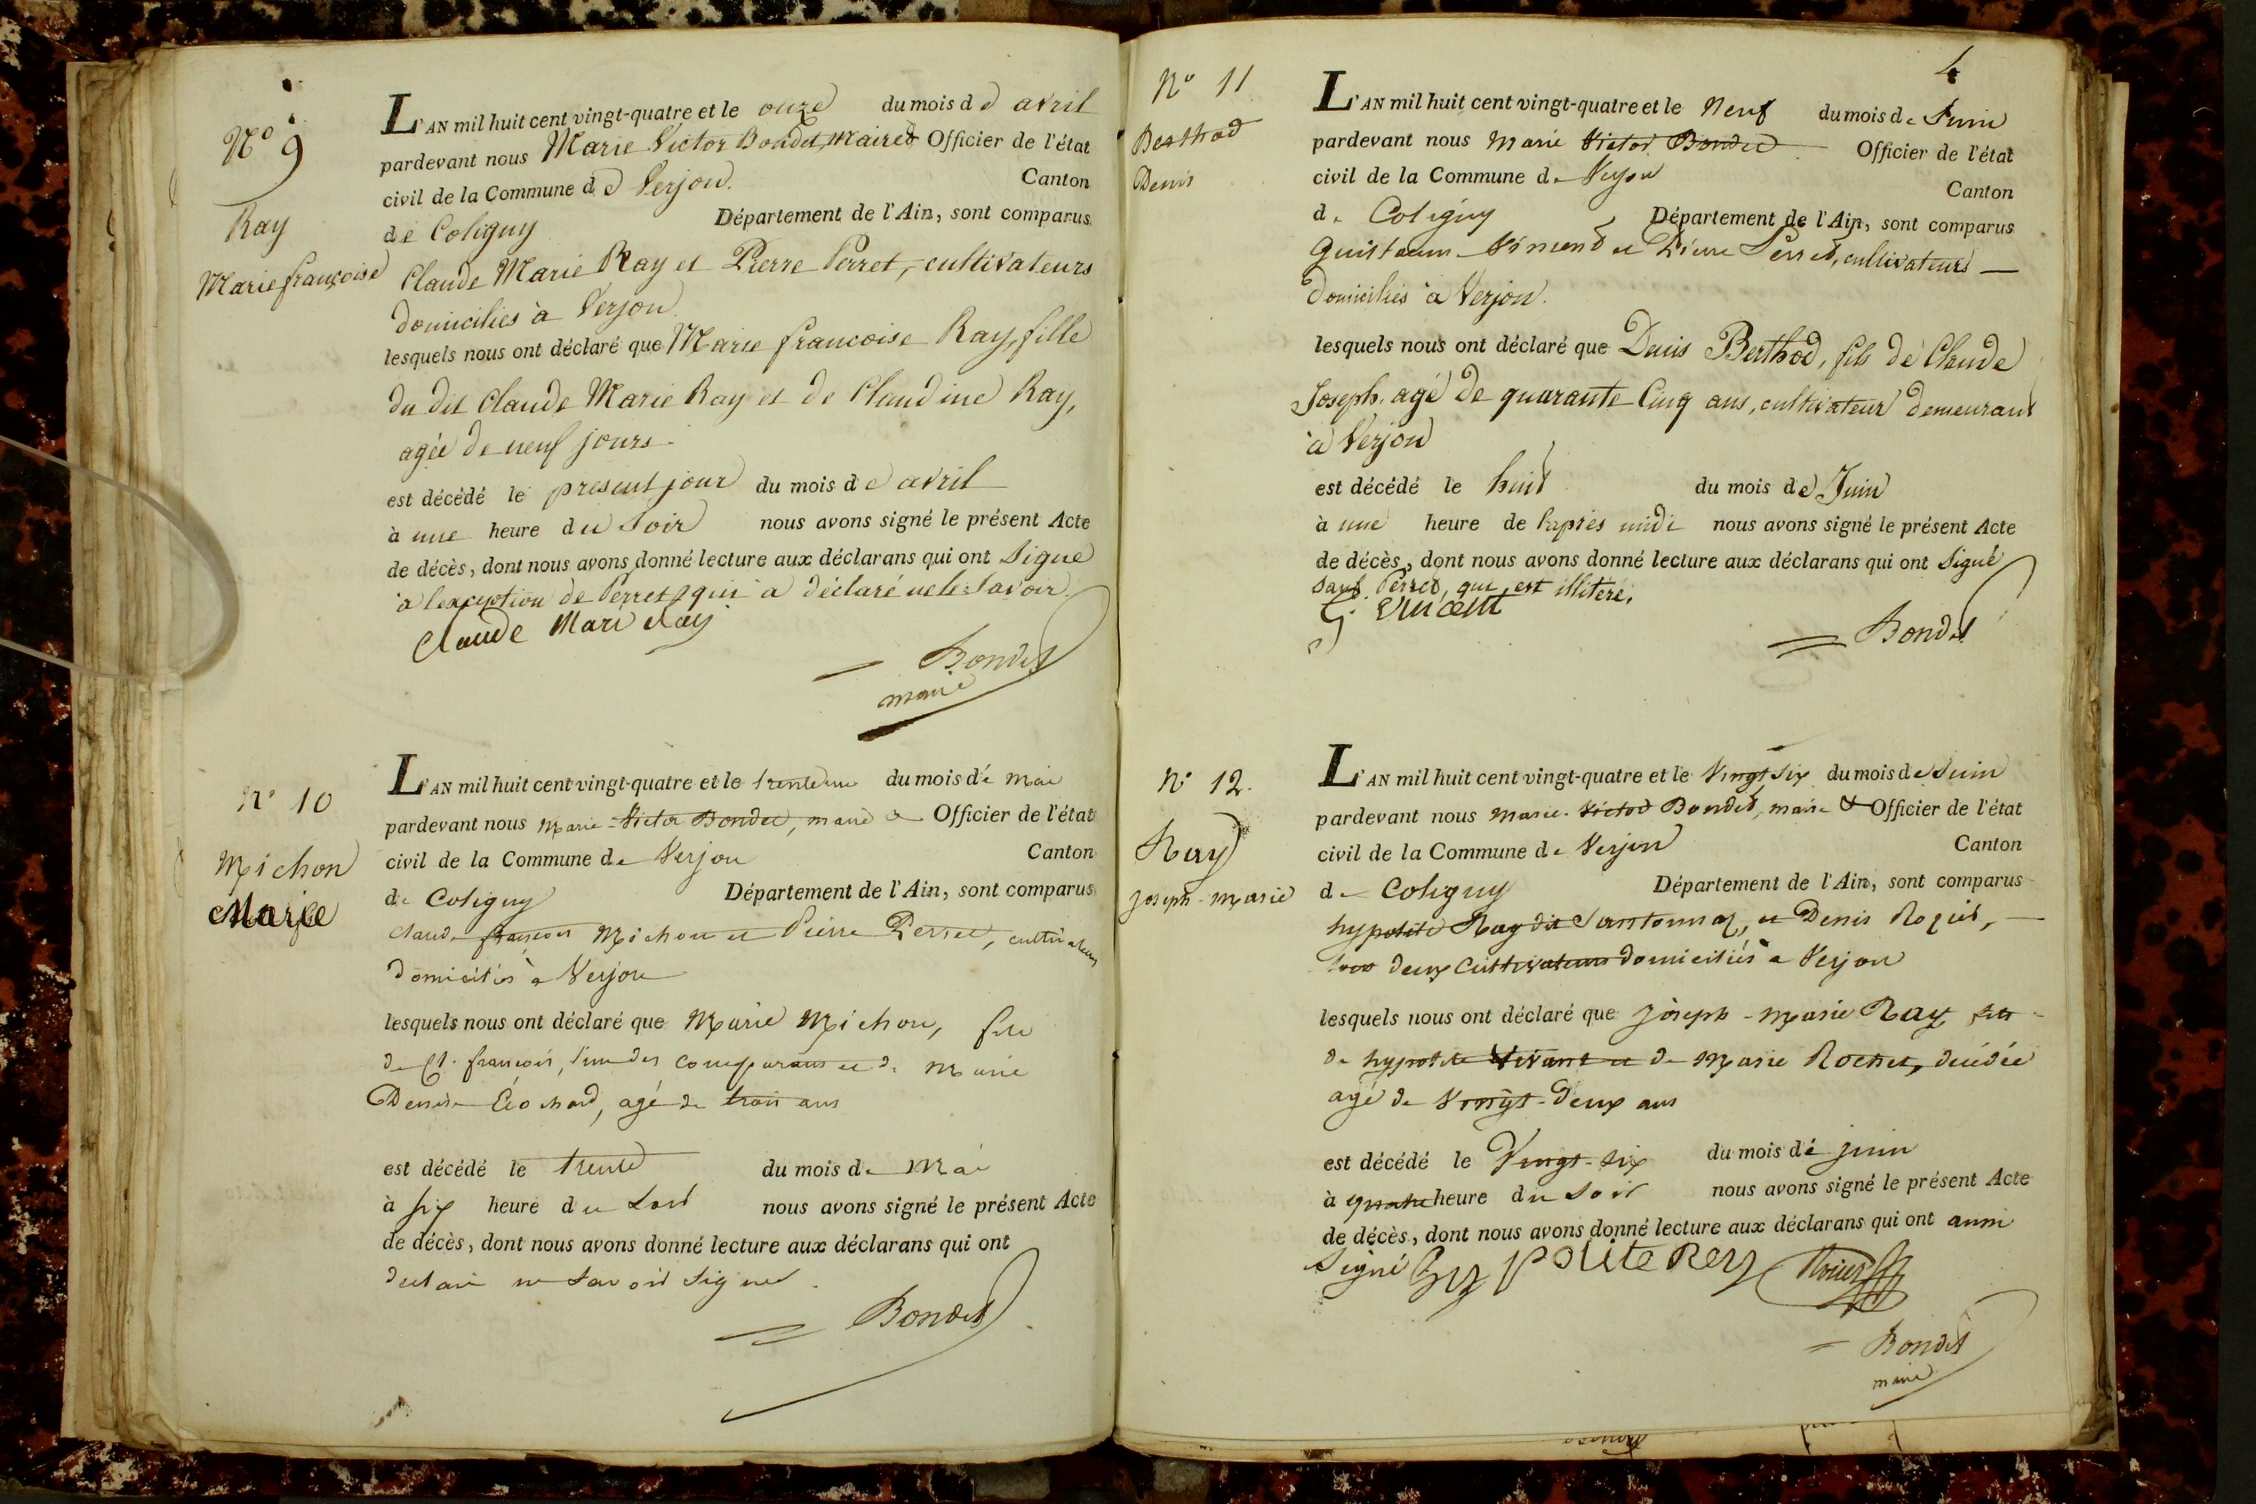 N° 9
Ray
Marie françoise
L'AN mil huit cent vingt-quatre et le onze du mois de avril
pardevant nous Marie Victor Bondet, Maire et Officier de l'état
civil de la Commune de Verjon. Canton
de Coligny Département de l'Ain, sont comparus
Claude Marie Ray et Pierre Perret, cultivateurs
domiciliés à Verjon
lesquels nous ont déclaré que Marie francoise Ray, fille
du dit Claude Marie Ray et de Claudine Ray,
agée de neuf jours.
est décédé le present jour du mois de avril
à une heure du Soir nous avons signé le présent Acte
de décès, dont nous avons donné lecture aux déclarans qui ont Signé
à l'exception de Perret qui a déclaré ne le Savoir.
Claude Mari Ray
Bondet
maire
N° 10
Michon
Marie
L'AN mil huit cent vingt-quatre et le trente un du mois de mai
pardevant nous Marie-Victor Bondet, maire & Officier de l'état
civil de la Commune de Verjon Canton
de Coligny Département de l'Ain, sont comparus
Claude françois Michon et Pierre Perret, cultivateurs
domiciliés à Verjon
lesquels nous ont déclaré que Marie Michon, fille
de Cl. françois, l'un des comparans et de Marie
Denise agé de trois ans
est décédé le trente du mois de Mai
à six heure du Soir nous avons signé le présent Acte
de décès, dont nous avons donné lecture aux déclarans qui ont
déclaré ne Savoir Signer.
Bondet
4
N° 11
Berthod
Denis
L'AN mil huit cent vingt-quatre et le Neuf du mois de Juin
pardevant nous Marie Victor Bondet Officier de l'état
civil de la Commune de Verjon Canton
de Coligny Département de l'Ain, sont comparus
et Pierre Perret, cultivateurs
domiciliés à Verjon.
lesquels nous ont déclaré que Denis Berthod, fils de Claude
Joseph, agé de quarante Cinq ans, cultivateur demeurant
à Verjon
est décédé le huit du mois de Juin
à une heure de l'après midi nous avons signé le présent Acte
de décès, dont nous avons donné lecture aux déclarans qui ont Signé
Sauf Perret, qui est illitéré.
G. Vincent
Bondet
N° 12.
Ray
Joseph-Marie
L'AN mil huit cent vingt-quatre et le Vingt six du mois de Juin
pardevant nous Marie-Victor Bondet, maire & Officier de l'état
civil de la Commune de Verjon Canton
de Coligny Département de l'Ain, sont comparus
hypolite Ray dit et Denis
deux Cultivateurs domiciliés à Verjon
lesquels nous ont déclaré que Joseph-Marie Ray fils
de hypolite Vivant et de Marie Rochet, décédée
agé de Vingt-deux ans
est décédé le Vingt-six du mois de juin
à quatre heure du Soir nous avons signé le présent Acte
de décès, dont nous avons donné lecture aux déclarans qui ont aussi
Signé hypolite Rey
Bondet
maire